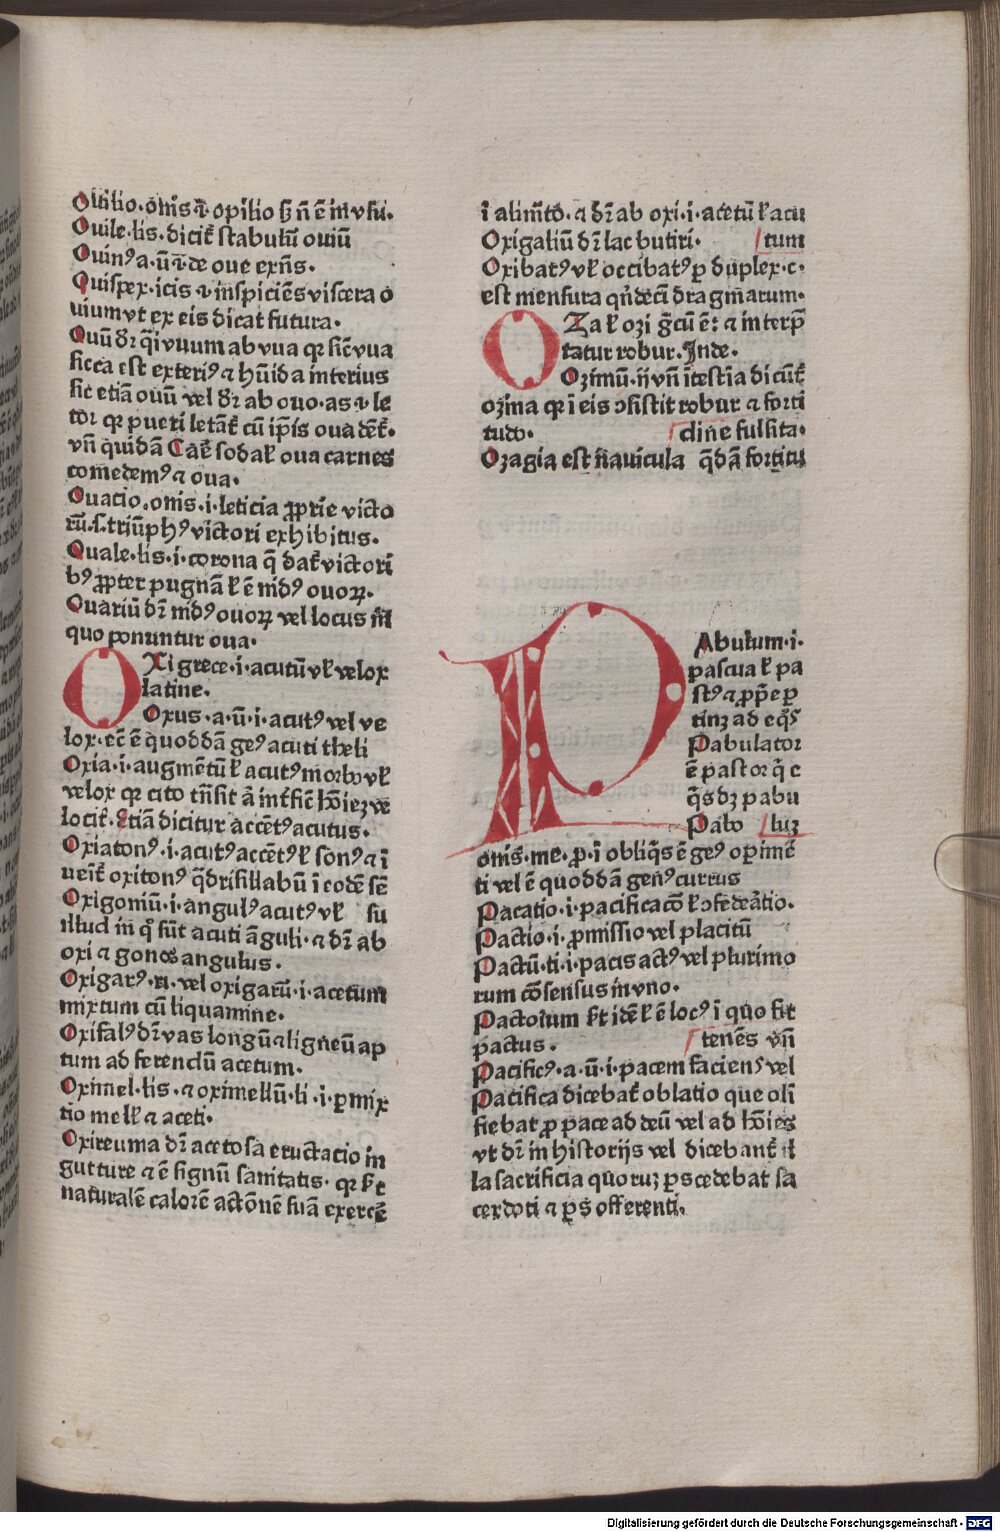 Ouilio·onis·ꝛ opilio ſꝫ nͦ ē in vſu·
Ouile·lis·dicit᷑ ſtabulū ouiū
Ouinꝰ a·ū·ꝛ·de oue exn̄s·
Ouiſpex·icis·ꝛ inſpiciēs viſcera o
uium vt ex eis dicat futura·
Ouū dr̄ q̄i vuum ab vua qꝛ ſic̄ vua
ſicca eſt exteriꝰ ⁊ hūida interius
ſic etiā ouū vel dr̄ ab ouo·as·ꝛ le
tor qꝛ pueri letāt᷑ cū ip̄is oua dēt᷑·
vn̄ quidā Car̄ ſodal᷑ oua carnes
comedemꝰ ⁊ oua·
Ouatio·onis·i·leticia ꝓprie victo
rū·ſ·triūphꝰ victori exhibitus·
Ouale·lis·i·corona q̄ dat᷑ victori
bꝰ ꝓpter pugnā ł ē nidꝰ ouoꝝ·
Ouariū dr̄ nidꝰ ouoꝝ vel locus in̄
quo ponuntur oua·
OXi grece·i·acutū vł velox
latine·
Oxus·a·ū·i·acutꝰ vel ve
lox·ec̄ ē quoddā geꝰ acuti theli
Oxia·i·augmētū ł acutꝰ morbꝰ vł
velox qꝛ cito tn̄ſit a᷑ int᷑fic̄ hoīeꝫ ve
locit᷑· Etiā dicitur accēt̄ꝰ acutus·
Oxiatonꝰ·i·acutꝰ accēt̄ꝰ ł ſonꝰ ⁊ ī
ueīt᷑ oxitonꝰ q̄driſillabū ī eodē ſē
Oxigoniū·i·angulꝰ acutꝰ vł ſu
illud in qͦ ſūt acuti āguli·⁊ dr̄ ab
oxi ⁊ gonos angulus·
Oxigarꝰ·ri·vel oxigarū·i·acetum
mixtum cū liquamine·
Oxifalꝰ dr̄ vas longū ⁊ ligneū ap
tum ad ferendū acetum·
Oximel·lis·⁊ oximellū·li·i·ꝑmix
tio mell᷑ ⁊ aceti·
Oxireuma dr̄ acetoſa eructacio in
gutture ⁊ ē ſignū ſanitatis· qꝛ ſic̄
naturalē calorē actōnē ſuā exercē
ī alimēto·⁊ dr̄ ab oxi·i·acetū ł acu
Oxigaliū dr̄ lac butiri· tum
Oxibatꝰ vł occibatꝰ ꝑ duplex·c·
eſt menſura qn̄decī dragmarum·
OZa ł ozi ḡcū ē: ⁊ interp̄
tatur robur·Inde·
Ozimū·ij vn̄ īteſtīa dicūt᷑
ozima qꝛ ī eis ꝯſiſtit robur ⁊ forti
tudo· dine fulſita·
Ozagia eſt nauicula q̄dā fortitu
PAbulum·i·
paſcua ł pa
ſtꝰ ⁊ ꝓp̄e ꝑ
tinꝫ ad eqͦs
Pabulator
ē paſtor q̄ e
q̄s dꝫ pabu
Pabo luꝫ
onis·me·ꝓ·ī obliq̄s ē geꝰ oꝑimē
ti vel ē quoddā genꝰ currus
Pacatio·i·pacificacō ł ꝯfederatio·
Pactio·i·ꝓmiſſio vel placitū
Pactū·ti·i·pacis actꝰ vel plurimo
rum cōſenſus in vno·
Pactorum ſit idē ł ē locꝰ ī quo fit
pactus· tenēs vn̄
Pacificꝰ·a·ū·i·pacem faciens vel
Pacifica dicebat᷑ oblatio que oli
fiebat ꝓ pace ad deū vel ad hoīes
vt dr̄ in hiſtorijs vel dicebant᷑ il
la ſacrificia quoruꝫ ꝑs cedebat ſa
cerdoti ⁊ ꝑs offerenti·
Digitalisierung gefördert durch die Deutsche Forschungsgemeinschaft - DFG